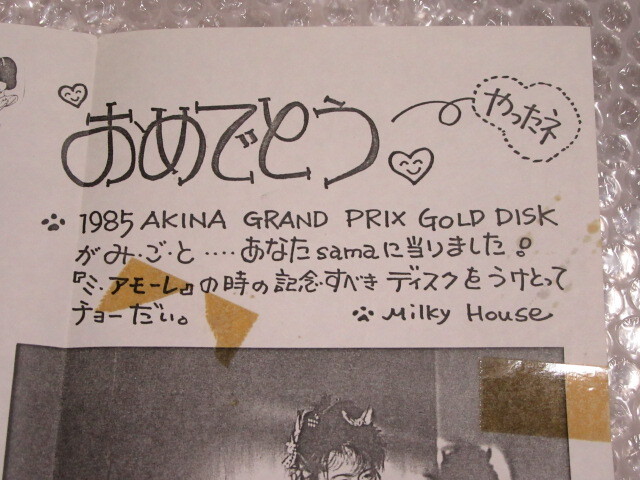 おめでとう
やったネ
1985 AKINA GRAND PRIX GOLD DISK
がみ・ご・と‥‥あなたsamaに当りました!
『ミ・アモーレ』の時の記念すべきディスクをうけとって
チョーだい。
Milky House